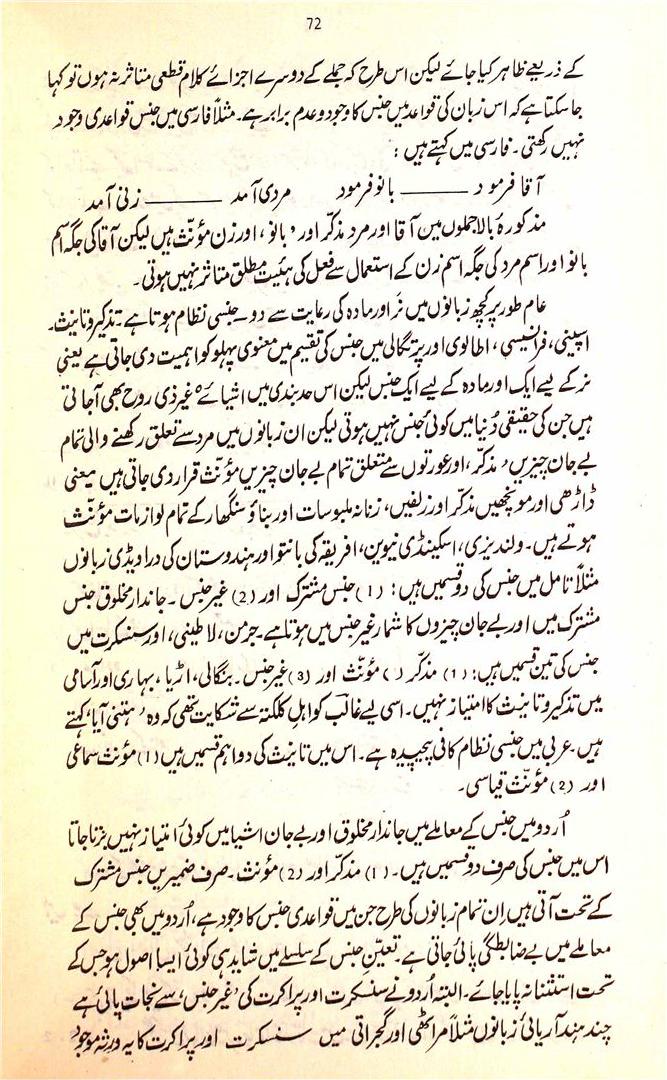 72
کے ذریعے ظاہر کیا جائے لیکن اس طرح کہ جملے کے دوسرے اجزائے کلام قطعی متاثر نہ ہوں تو کہا
جا سکتا ہے کہ اس زبان کی قواعد میں جنس کا وجود و عدم برابر ہے۔ مثلاً فارسی میں جنس قواعدی وجود
نہیں رکھتی۔ فارسی میں کہتے ہیں :
آقا فرمود ——— بانو فرمود مردی آمد ——— زنی آمد
مذکورۂ بالا جملوں میں آقا اور مرد مذکّر اور ’بانو‘، اور زن مؤنّث ہیں لیکن آقا کی جگہ اسم
بانو اور اسم مرد کی جگہ اسم زن کے استعمال سے فعل کی ہئیت مطلق متاثر نہیں ہوتی۔
عام طور پر کچھ زبانوں میں نر اور مادہ کی رعایت سے دو جنسی نظام ہوتا ہے۔ تذکیر و تانیث۔
اسپینی، فرانسیسی، اطالوی اور پرتگالی میں جنس کی تقسیم میں معنوی پہلو کو اہمیت دی جاتی ہے یعنی
نر کے لیے ایک اور مادہ کے لیے ایک جنس لیکن اس حد بندی میں اشیائے غیر ذی روح بھی آجاتی
ہیں جن کی حقیقی دُنیا میں کوئی جنس نہیں ہوتی لیکن ان زبانوں میں مرد سے تعلق رکھنے والی تمام
بے جان چیزیں ’مذکّر‘، اور عورتوں سے متعلق تمام بے جان چیزیں مؤنّث قرار دی جاتی ہیں یعنی
ڈاڑھی اور مونچھیں مذکّر اور زلفیں، زنانہ ملبوسات اور بناؤ سنگھار کے تمام لوازمات مؤنّث
ہوتے ہیں۔ ولندیزی، اسکینڈی نیوین، افریقہ کی بانتو اور ہندوستان کی دراویڈی زبانوں
مثلاً تامل میں جنس کی دو قسمیں ہیں: (1) جنس مشترک اور (2) غیر جنس۔ جاندار مخلوق جنس
مشترک میں اور بے جان چیزوں کا شمار غیر جنس میں ہوتا ہے۔ جرمن، لاطینی، اور سنسکرت میں
جنس کی تین قسمیں ہیں: (1) مذکّر ( ) مؤنّث اور (3) غیر جنس۔ بنگالی، اڑیا، بہاری اور آسامی
میں تذکیر و تانیث کا امتیاز نہیں۔ اسی لیے غالبؔ کو اہلِ کلکتہ سے شکایت تھی کہ وہ ’ہتنی آیا‘ کہتے
ہیں۔ عربی میں جنسی نظام کافی پیچیدہ ہے۔ اس میں تانیث کی دو اہم قسمیں ہیں (1) مؤنث سماعی
اور (2) مؤنّث قیاسی۔
اُردو میں جنس کے معاملے میں جاندار مخلوق اور بے جان اشیا میں کوئی امتیاز نہیں برتا جاتا
اس میں جنس کی صرف دو قسمیں ہیں۔ (1) مذکّر اور (2) مؤنث۔ صرف ضمیریں جنس مشترک
کے تحت آتی ہیں اِن تمام زبانوں کی طرح جن میں قواعدی جنس کا وجود ہے، اُردو میں بھی جنس کے
معاملے میں بے ضابطگی پائی جاتی ہے۔ تعیّنِ جنس کے سلسلے میں شاید ہی کوئی ایسا اصول ہو جس کے
تحت استثنا نہ پایا جائے۔ البتہ اُردو نے سنسکرت اور پراکرت کی ’غیر جنس‘، سے نجات پائی ہے
چند ہند آریائی زبانوں مثلاً مراٹھی اور گجراتی میں سنسکرت اور پراکرت کا یہ ورثہ موجود